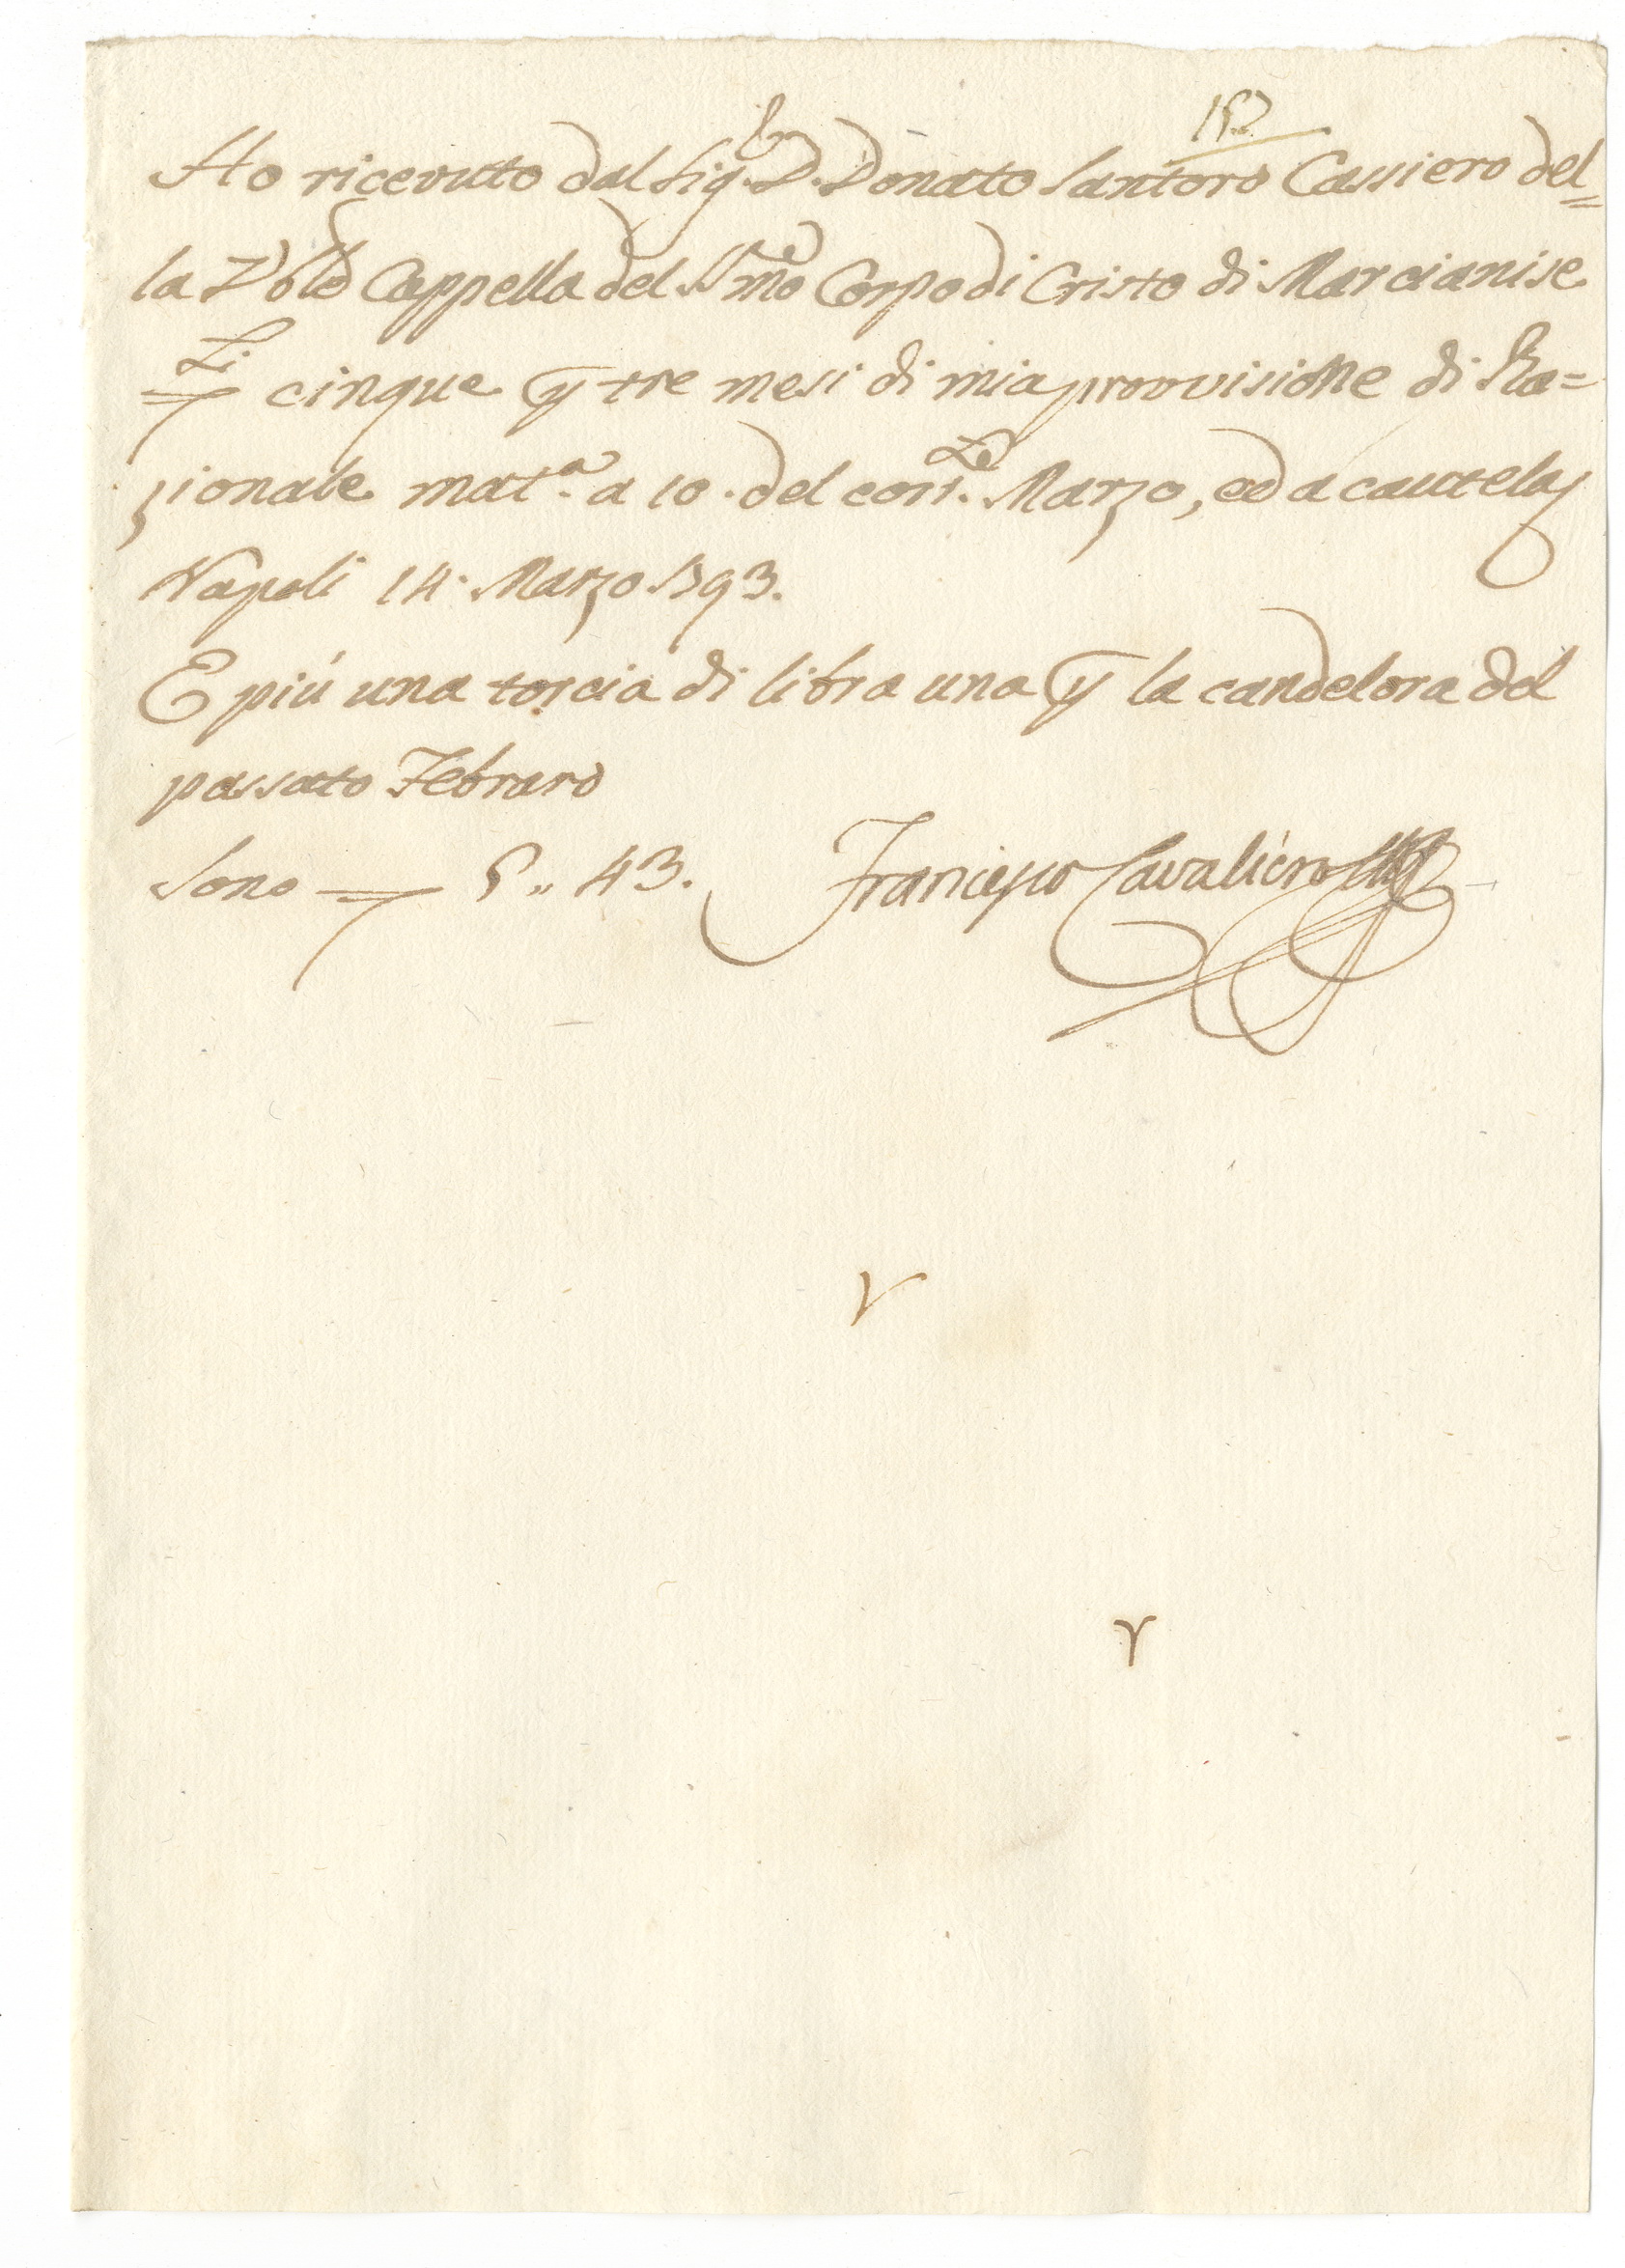 152
Ho ricevuto dal Sig.r D. Donato Santoro Cassiero del=
la Ven.le Cappella del SSmo Corpo di Cristo di Marcianise
D.ti cinque p tre mesi di mia provvisione di Ra=
zionale mat.a a 10. del corr.te Marzo, ed a cautela
Napoli 14. Marzo 1793.
E più una torcia di libra una p la candelora del
passato Febraro
Sono D 5,, 43. Francesco Cavaliero